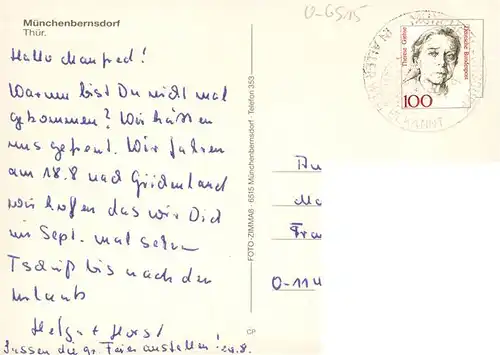 Münchenbernsdorf
Thür.
O-6515
Hallo Manfred!
Warum bist Du nicht mal
gekommen? Wir hätten
uns gefreut. Wir fahren
am 18.8 nach Gridenland
wir hofen das wir Dich
im Sept. mal sehen
Tschüß bis nach den
Urlaub
Helga + Horst
die gr. Feier anstellen! 20.8.
FOTO-ZIMMAß · 6515 Münchenbernsdorf · Telefon 353
CP
Therese Giehse
Deutsche Bundespost
100
BEKANNT
An
Ma
Fra
O-114